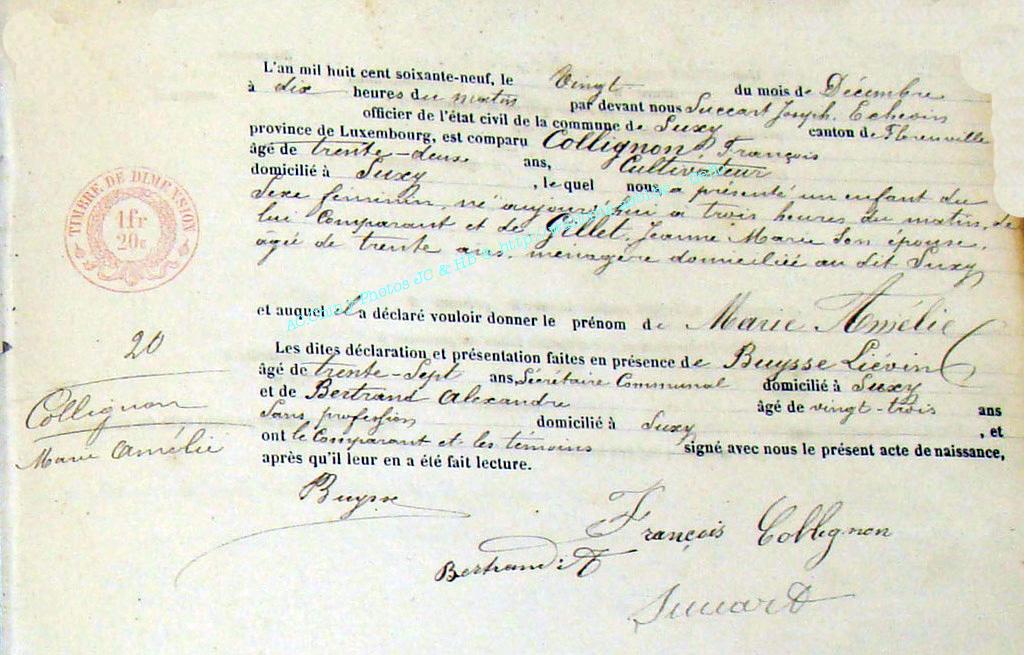 L'an mil huit cent soixante-neuf, le Vingt du mois de Décembre
à dix heures du matin par devant nous Succart Joseph, Echevin
officier de l'état civil de la commune de Suxy canton de Florenville
province de Luxembourg, est comparu Collignon, François
âgé de trente-deux ans, Cultivateur
domicilié à Suxy, le quel nous a présenté un enfant du
Sexe féminin, né aujourd'hui à trois heures du matin, de
lui Comparant et de Gillet, Jeanne Marie son épouse,
âgé de trente ans, ménagère domiciliée au dit Suxy
et auquel il a déclaré vouloir donner le prénom de Marie Amélie
Les dites déclaration et présentation faites en présence de Buysse Liévin
âgé de trente-Sept ans, Sécrétaire Communal domicilié à Suxy
et de Bertrand Alexandre âgé de vingt-trois ans
Sans profession domicilié à Suxy, et
ont le Comparant et les témoins signé avec nous le présent acte de naissance,
après qu'il leur en a été fait lecture.
Buysse
François Collignon
Bertrand A
Succart
TIMBRE DE DIMENSION
1 fr
20 c
20
Collignon
Marie Amélie
Photos JC & HB